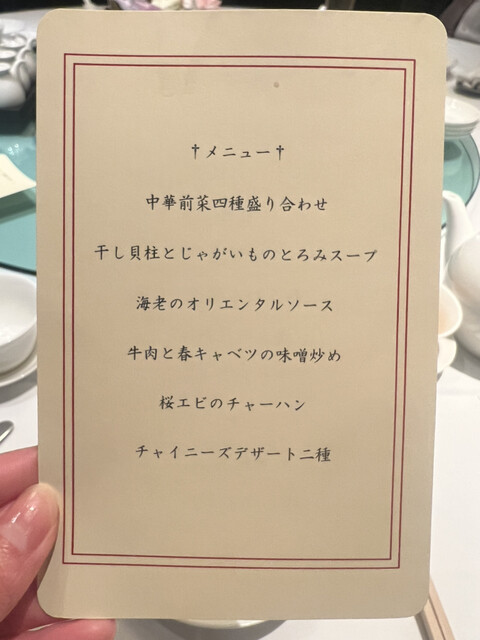 †メニュー†
中華前菜四種盛り合わせ
干し貝柱とじゃがいものとろみスープ
海老のオリエンタルソース
牛肉と春キャベツの味噌炒め
桜エビのチャーハン
チャイニーズデザート二種